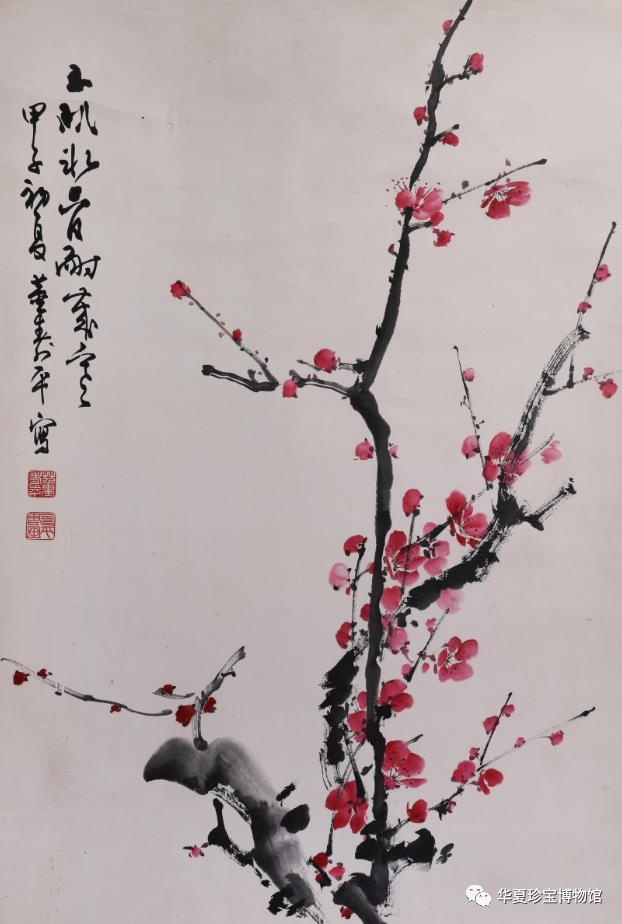 玉肌冰骨耐歲寒
甲子初夏董寿平寫
华夏珍宝博物馆